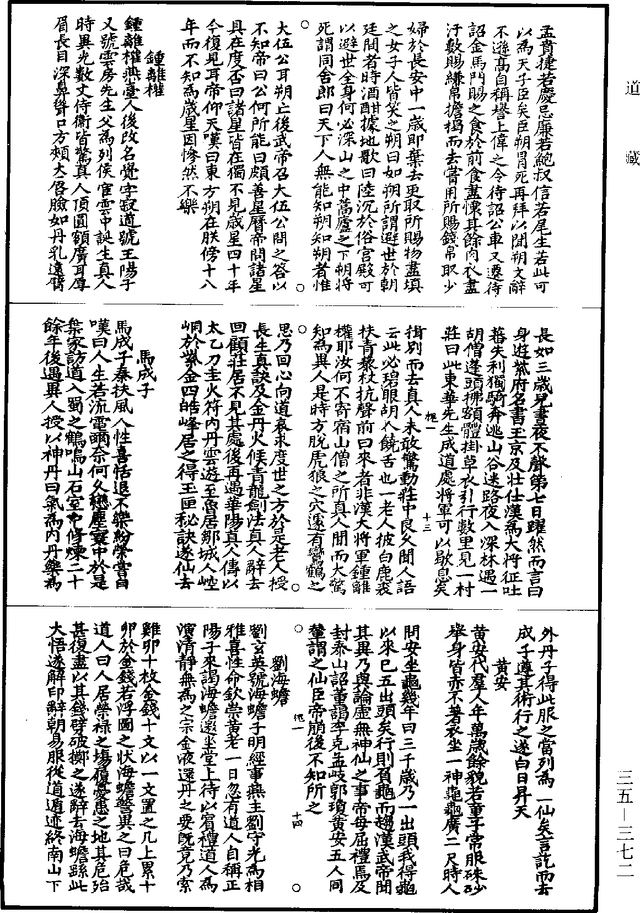 道藏
孟賁捷若慶忌廉若鮑叔信若尾生若此可
以為天子臣矣臣朔冒死再拜以聞朔文辭
不遜高自稱譽上偉之令待詔公車又遷待
詔金馬門賜之食於前食盡懷其餘肉衣盡
汙數賜縑帛擔揭而去嘗用所賜錢帛取少
婦於長安中一歲即棄去更取所賜物盡填
之女子人皆笑之朔曰如朔所謂避世於朝
廷間者時酒酣據地歌曰陸沉於俗宮殿可
以避世全身何必深山之中蒿廬之下朔將
死謂同舍郎曰天下人無能知朔知朔者惟
大伍公耳朔亡後武帝召大伍公問之答以
不知帝曰公何所能曰頗善星曆帝問諸星
具在度否曰諸星皆在獨不見歲星四十年
今復見耳帝仰天嘆曰東方朔在朕傍十八
年而不知為歲星因慘然不樂
鍾離權
鍾離權燕臺人後改名覺字寂道號王陽子
又號雲房先生父為列侯宦雲中誕生真人
時異光數丈侍衛皆驚真人頂圓額廣耳厚
眉長目深鼻聳口方頰大唇臉如丹乳遠臂
長如三歲兒晝夜不聲第七日躍然而言曰
身遊紫府名書玉京及壯仕漢為大將征吐
蕃失利獨騎奔逃山谷迷路夜入深林遇一
胡僧蓬頭拂額體掛草衣引行數里見一村
莊曰此東華先生成道處將軍可以歇息矣
十三
揖別而去真人未敢驚動莊中良久聞人語
云此必碧眼胡人饒舌也一老人披白鹿裘
扶青藜杖抗聲前曰來者非漢大將軍鍾離
權耶汝何不寄宿山僧之所真人聞而大驚
知為異人是時方脫虎狼之穴遽有鸞鶴之
思乃回心向道哀求度世之方於是老人授
長生真訣及金丹火候青龍劍法真人辭去
回顧莊居不見其處後再遇華陽真人傳以
太乙刀圭火符內丹雲遊至魯居鄒城人崆
峒於紫金四皓峰居之得玉匣秘訣遂仙去
馬成子
馬成子秦扶風人性喜恬退不樂紛榮嘗曰
嘆曰人生若流電爾奈何久戀塵寰中於是
棄家訪道入蜀之鶴鳴山石室中修煉二十
餘年後遇異人授以神丹曰氣為內丹藥為
外丹子得此服之當列為一仙矣言訖而去
成子遵其術行之遂白日昇天
黃安
黃安代羣人年萬歲餘貌若童子常服硃砂
舉身皆赤不著衣坐一神龜龜廣二尺時人
問安坐龜幾年曰三千歲乃一出頭我得龜
以來巳五出頭矣行則負龜而趨漢武帝聞
其異乃與論虛無神仙之事帝每屈禮焉及
封泰山詔董謁李充孟岐郭瓊黃安五人同
輦謂之仙臣帝崩後不知所之
十四
劉海蟾
劉玄英號海蟾子明經事燕主劉守光為相
雅喜性命欽崇黃老一日忽有道人自稱正
陽子來謁海蟾邀坐堂上待以賓禮道人為
演清靜無為之宗金液還丹之要既竟乃索
雞卵十枚金錢十文以一文置之几上累十
卵於金錢若浮圖之狀海蟾驚異之曰危哉
道人曰人居榮祿之場履憂患之地其危殆
甚復盡以其錢擘破擲之遂辭去海蟾繇此
大悟遂解印辭朝易服從道遁迹終南山下
三五—三七二